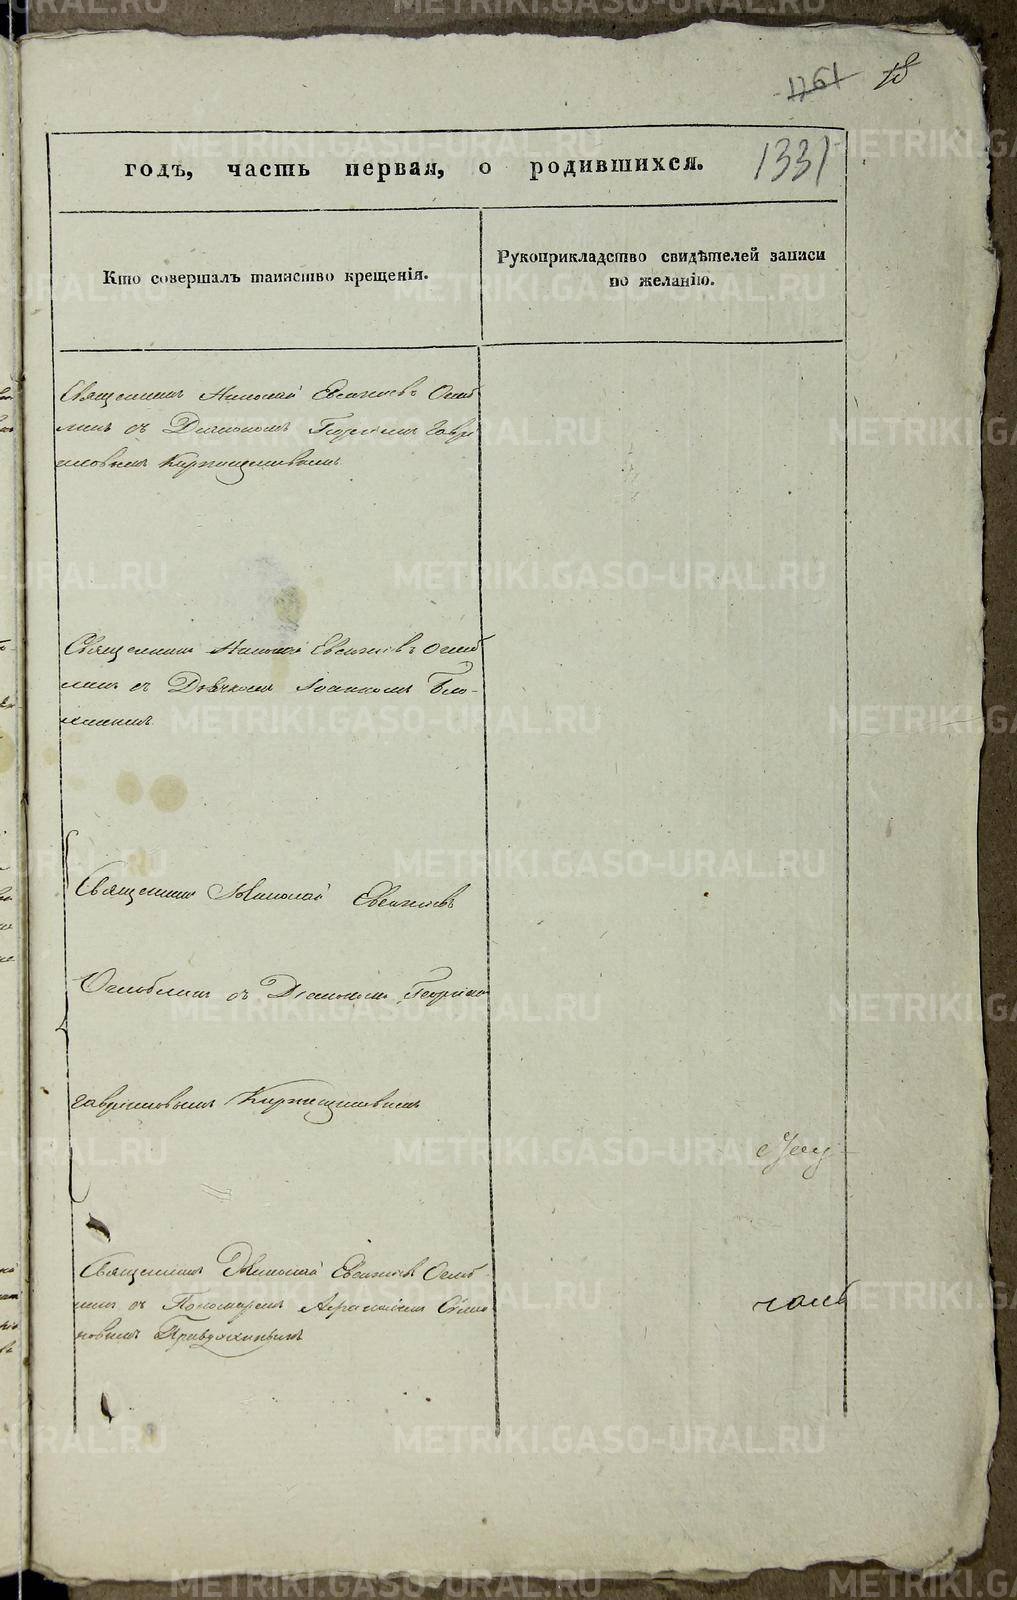 1761 18
1331
годъ, часть первая, о родившихся.
Кто совершалъ таинство крещенія.
Рукоприкладство свидѣтелей записи
по желанію.
Священникъ Николай Евсигнѣевъ Оглоб
линъ съ Діакономъ Георгіемъ Гаврі
иловымъ Кирпищиковымъ
Священникъ Николай Евсигнѣевъ Оглоб
линъ съ Дьячкомъ Іоанномъ Бло-
хинымъ
Священникъ Николай Евсигнѣевъ
Оглоблинъ съ Діакономъ Георгіемъ
Гавріиловымъ Кирпищиковымъ
Священникъ Николай Евсигнѣевъ Оглоб
линъ съ Пономаремъ Аѳанасіемъ Симо
новымъ Правдухинымъ
METRIKI.GASO-URAL.RU